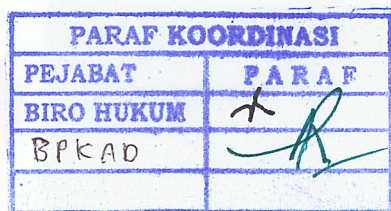 PARAF KOORDINASI
PEJABAT PARAF
BIRO HUKUM
BPKAD